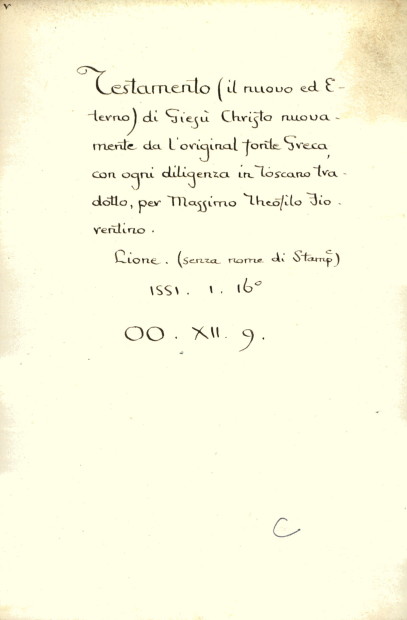 Testamento (il nuovo ed E-
terno) di Giesù Christo nuova-
mente da l'original fonte Greca,
con ogni diligenza in Toscano tra-
dotto, per Massimo Theofilo Fio-
rentino.
Lione. (senza nome di Stampe)
1551. 1. 16º
OO. XII. 9.
C